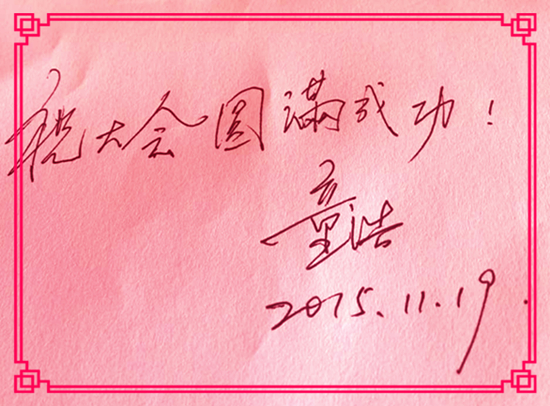 祝大会圆滿成功！
童浩
2015.11.19.